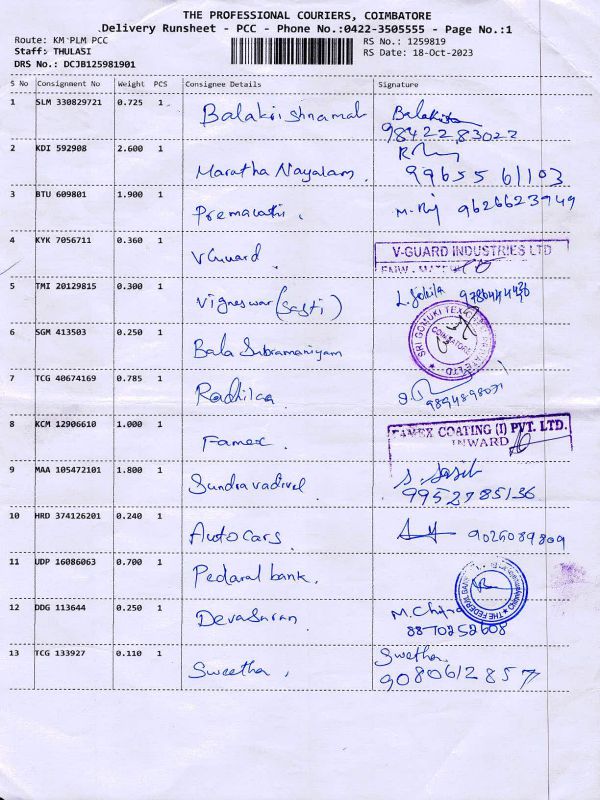 THE PROFESSIONAL COURIERS, COIMBATORE
Delivery Runsheet - PCC - Phone No.:0422-3505555 - Page No.:1
Route: KM PLM PCC
RS No.: 1259819
Staff: THULASI
RS Date: 18-Oct-2023
DRS No.: DCJB125981901
S No Consignment No Weight PCS Consignee Details Signature
1 SLM 330829721 0.725 1 Balakrishnamal
98422 83022
2 KDI 592908 2.600 1 Maratha Nayalam.
99655 61103
3 BTU 609801 1.900 1 9626623949
4 KYK 7056711 0.360 1 VGuard
V-GUARD INDUSTRIES LTD
5 TMI 20129815 0.300 1 Vigneswar
6 SGM 413503 0.250 1 Bala Subramaniyam
COIMBATORE
7 TCG 40674169 0.785 1
8 KCM 12906610 1.000 1 Famex.
FAMEX COATING (I) PVT. LTD.
INWARD
9 MAA 105472101 1.800 1 Sundravadivel
S. Sasi
99527 85136
10 HRD 374126201 0.240 1 Auto cars
11 UDP 16086063 0.700 1 Pedaral bank.
THE FEDERAL BANK
12 DDG 113644 0.250 1
8870252608
13 TCG 133927 0.110 1 Sweetha,
Swetha.
9080612857